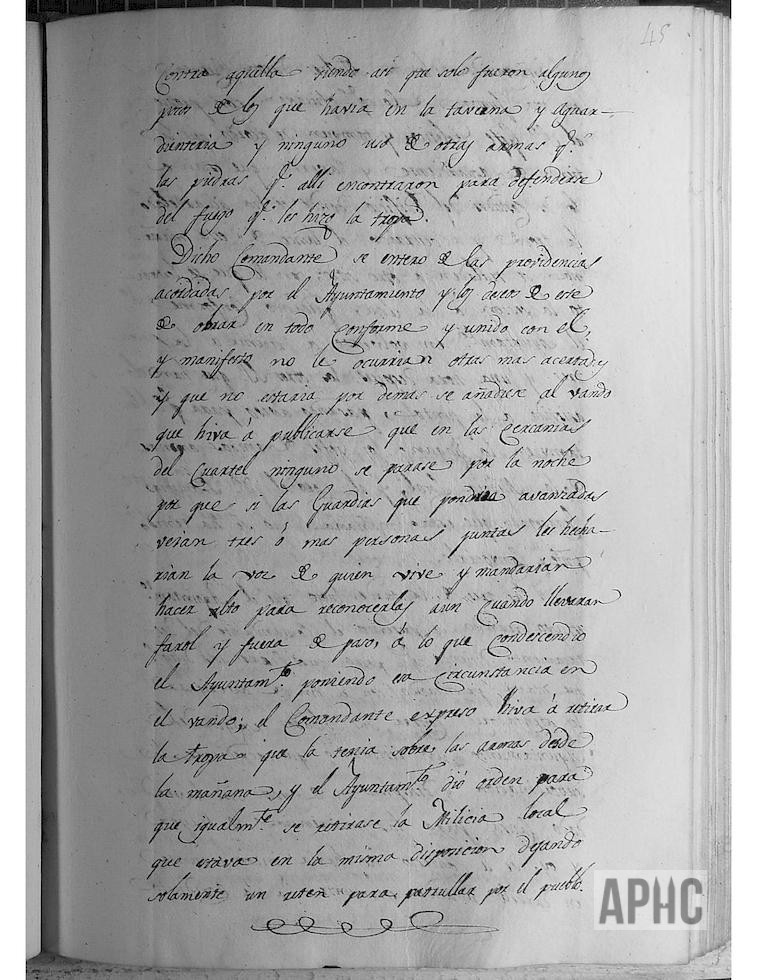 45
Contra aquella siendo asi que solo fueron algunos
picos de los que havia en la taverna y aguar-
dienteria y ninguno usó de otras armas q.e
las piedras q.e alli encontraron para defenderse
del fuego q.e les hizo la tropa.
Dicho Comandante se entero de las providencias
acordadas por el Ayuntamiento y los deceos de este
de obrar en todo conforme y unido con él,
y manifestó no le ocurrian otras mas acertadas
y que no estaria por demas se añadiese al vando
que hiva á publicarse que en las cercanias
del Cuartel ninguno se parase por la noche
por que si las Guardias que pondria avanzadas
veian tres ó mas personas juntas les hecha-
rian la voz de quien vive y mandarian
hacer alto para reconocerlas aun cuando llevaran
farol y fuera de paso, á lo que condescendió
el Ayuntam.to poniendo esa circunstancia en
el vando; el Comandante expreso hiva á retirar
la tropa que la tenia sobre las armas desde
la mañana, y el Ayuntam.to dió orden para
que igualm.te se retirase la Milicia local
que estava en la misma disposicion dejando
solamente un reten para patrullar por el pueblo.
APHC